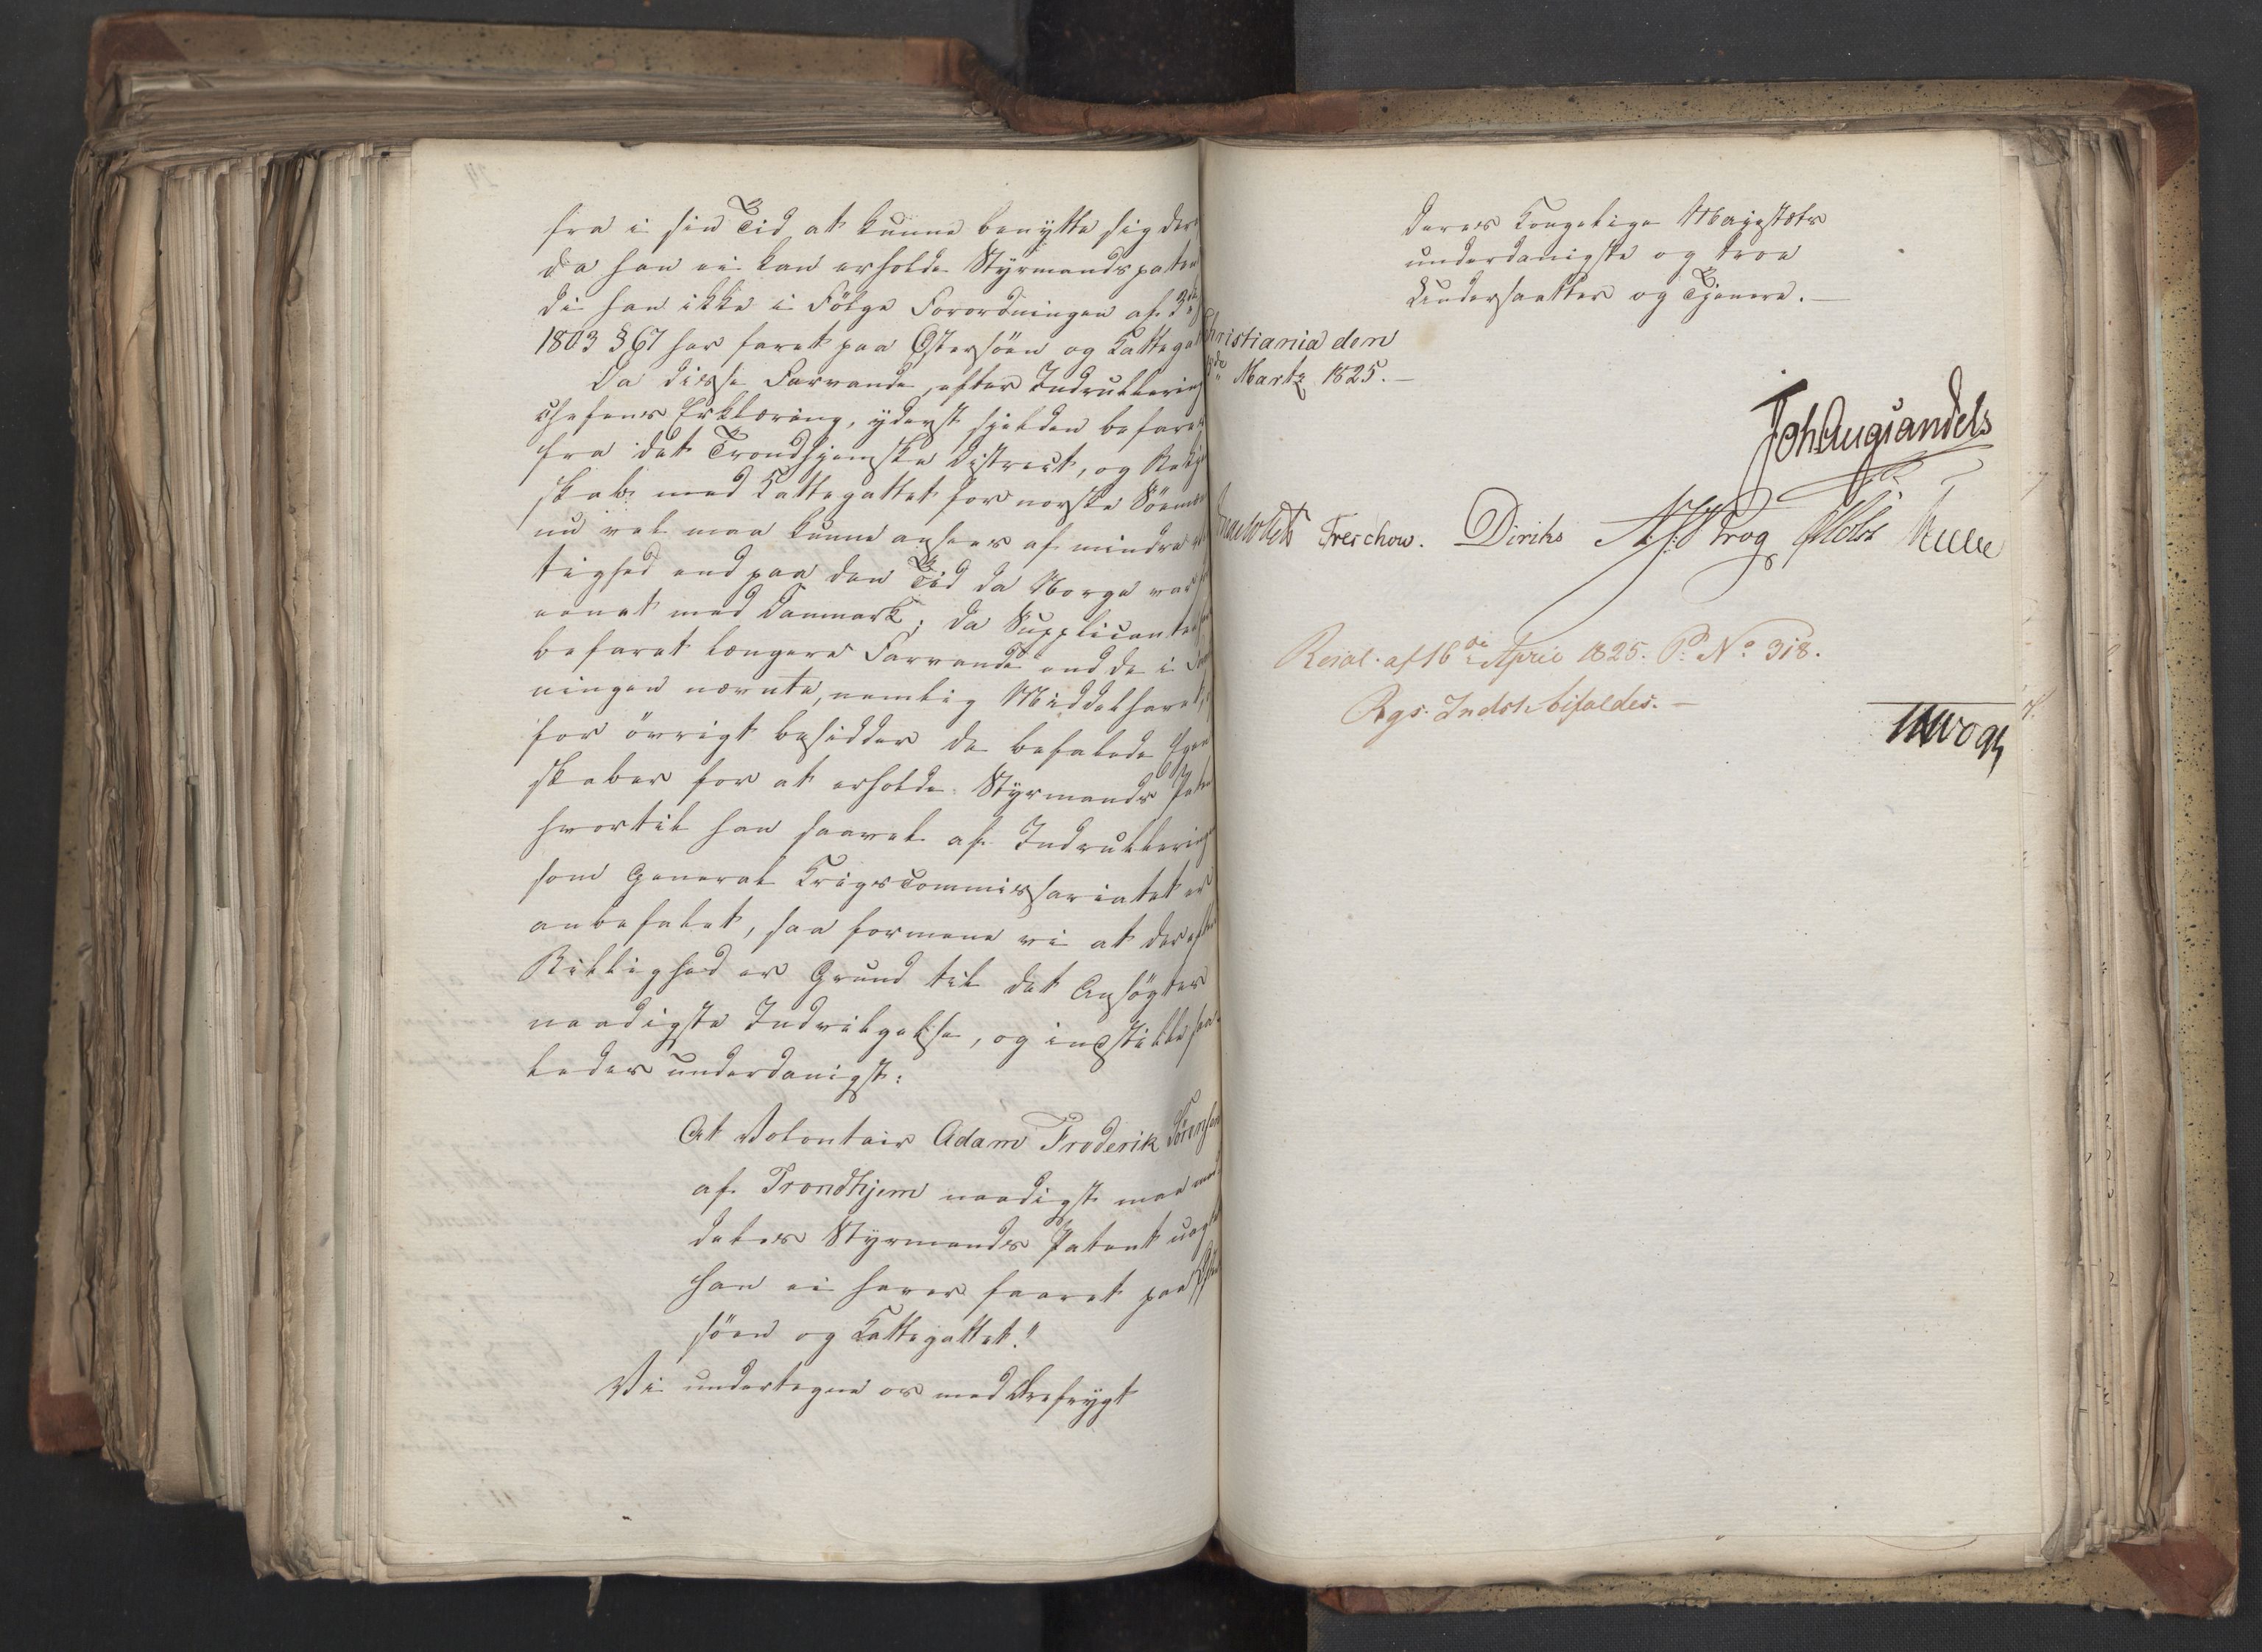 fra i sin Tid at kunne benytte sig der
da han ei kan erholde Styrmandspaten
di han ikke i Fölge Forordningen af
1803 § 67 har faret paa Östersöen og Kattegat
Da disse Farvande, efter Indrullering
chefens Erklæring, yderst sjelden befares
fra det Trondhjemske District, og
skab med Kattegattet for norske Söemæ
nu vel maa kunne ansees af mindre
tighed end paa den Tid da Norge var
eenet med Danmark; da Supplicanten
befaret længere Farvande end de i
ningen nævnte, nemlig Middelhavet,
for övrigt besidder de befalede Egen
skaber for at erholde Styrmands Paten
hvortil han saavel af Indrullerings
som General Krigscommissariatet er
anbefalet, saa formene vi at der efter
Billighed er Grund til det Ansögtes
naadigste Indvilgelse, og indstille saa
ledes underdanigst:
At Volontair Adam Frederik Sörensen
af Trondhjem naadigst maa med
deles Styrmands Patent uagt
han ei haver faaret paa Öster
söen og Kattegattet."
Vi undertegne os med Ærefrygt
Deres Kongelige Majestæts
underdanigste og troe
Undersaatter og Tjenere.
Christiania den
Marts 1825.
Joh Aug Sandels
Treschow. Diriks Krog Holst
Resol. af 16de April 1825. P. No 318.
Rgs. Indst. bifaldes.